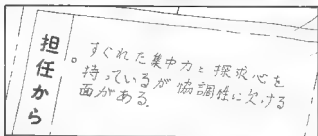 担任から
すぐれた集中力と探求心を
持っているが協調性に欠ける
面がある。